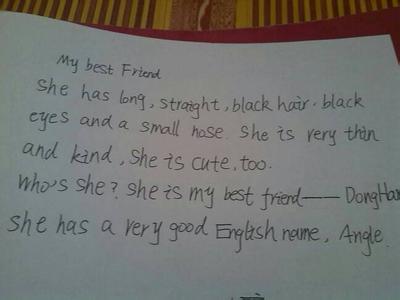 My best Friend
She has long, straight, black hair. black
eyes and a small nose. She is very thin
and kind, She is cute, too.
Who's she? She is my best friend—— DongHan
She has a very good English name, Angle.